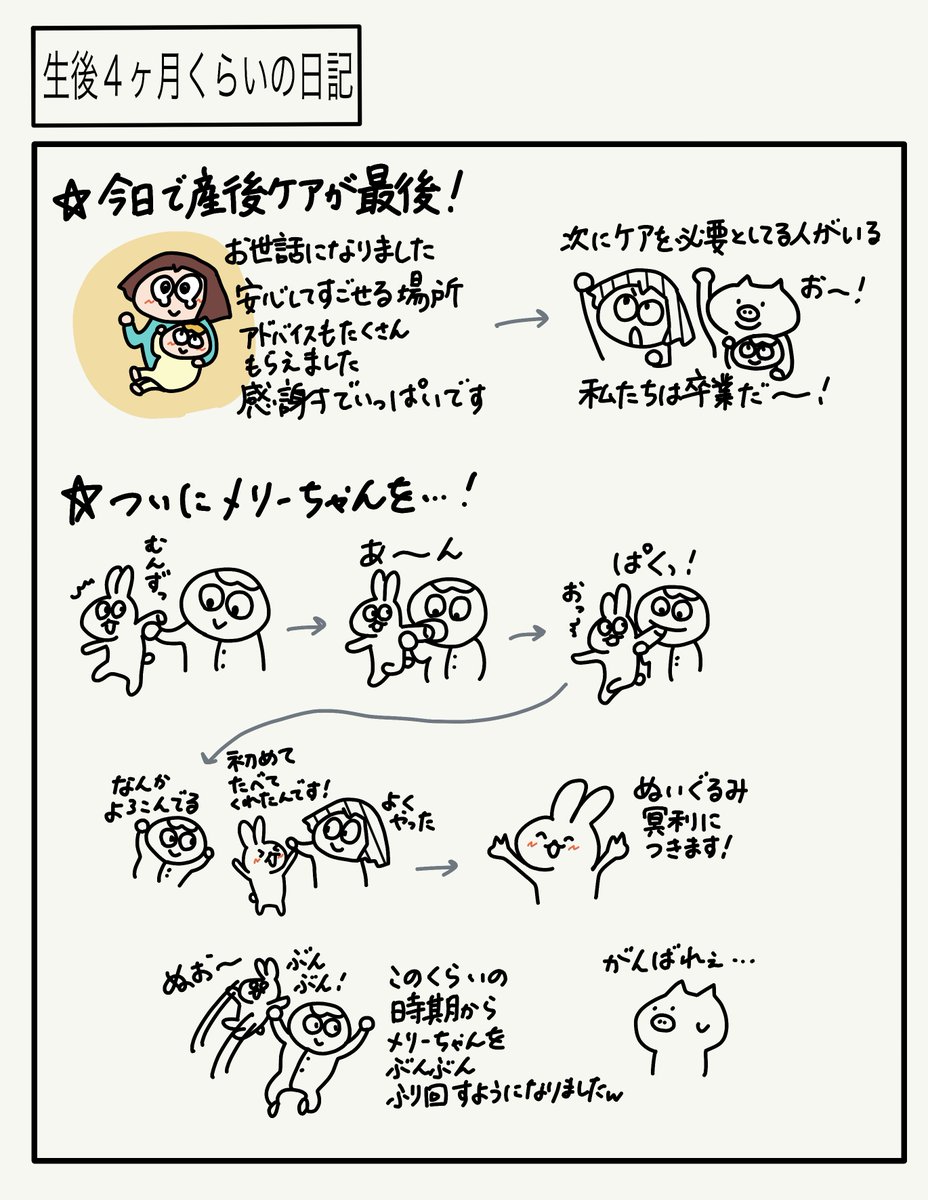 生後4ヶ月くらいの日記
☆今日で産後ケアが最後!
お世話になりました
安心してすごせる場所
アドバイスもたくさん
もらえました
感謝すでいっぱいです
次にケアを必要としてる人がいる
お〜!
私たちは卒業だ〜!
☆ついにメリーちゃんを…!
むんずっ
あ〜ん
ぱくっ!
おっ
なんか
よろこんでる
初めて
たべて
くれたんです!
よく
やった
ぬいぐるみ
冥利に
つきます!
ぬぉ〜
ぶん
ぶん!
このくらいの
時期から
メリーちゃんを
ぶんぶん
ふり回すようになりましたw
がんばれぇ…